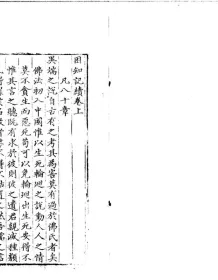 困知記續卷上
凡八十章
異端之說自古有之考其為害莫有過於佛氏者矣
佛法初入中國惟以生死輪迴之說動人人之情
莫不貪生而惡死苟可以免輪迴出生死安得不
惟其言之聽既有求於彼則彼之遺君親滅種類